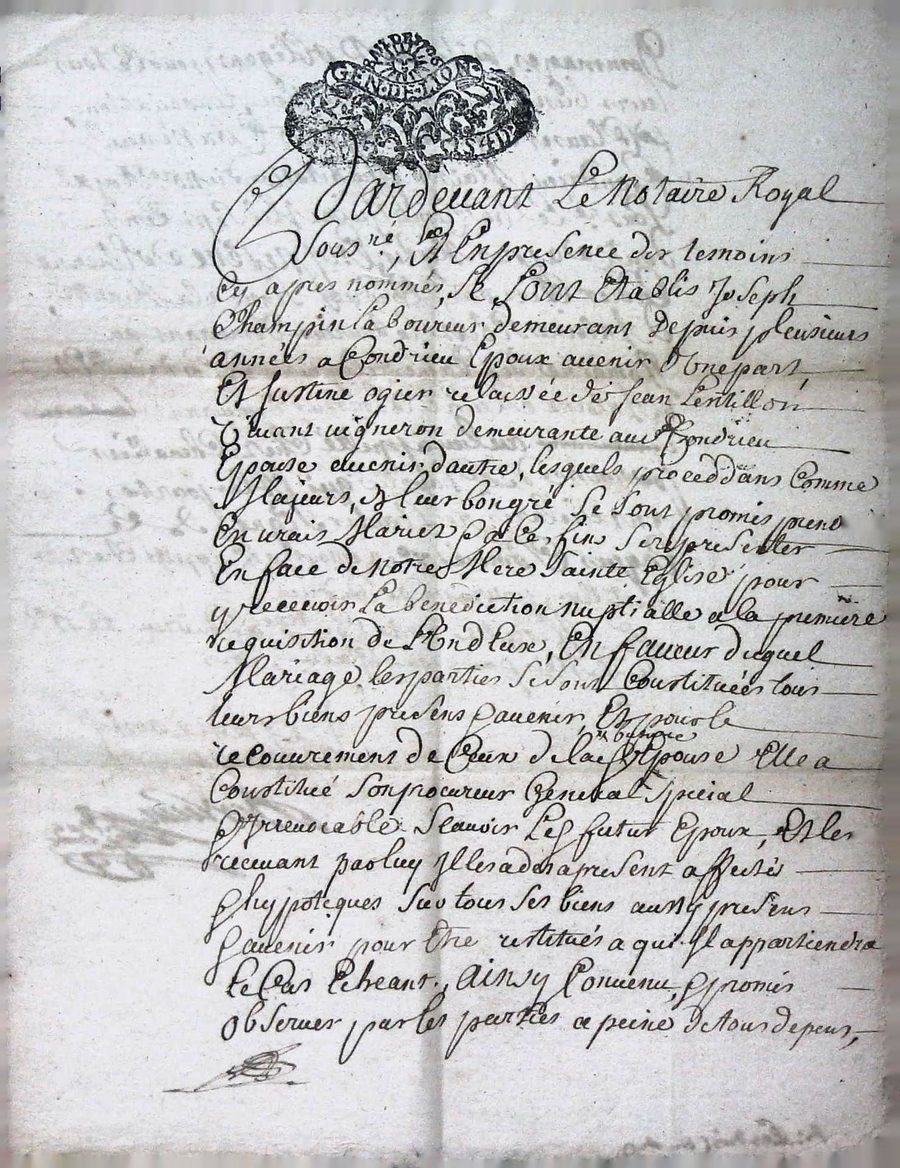 GEN·DE·LION
Pardevant Le Notaire Royal
Sous.né, Et En presence des temoins
Cy apres nommés, Se Sont Etablis Joseph
Champin Laboureur demeurant Depuis plusieurs
années a Condrieu Epoux avenir d'une part
Et Justine ogier relaissée de Jean Lentillon
vivant vigneron demeurante aud Condrieu
Epouse avenir d'autre, lesquels proceddans Comme
Majeurs, & leur bon gré Se Sont promis prend
En vrais Mariez & a Ces fins Se representer
En face de Notre Mere Sainte Eglise pour
y recevoir La benediction nuptialle a la premiere
requisition de L'un d'Eux, En faveur duquel
Mariage les parties Se Sont Constituées tous
leurs biens presens & avenir, Et pour le
recouvrement de Ceux de la Epouse Elle a
Constitué Son procureur General Special
& Irrevocable Scavoir Led futur Epoux, Et les
recevant par luy Il les a des a present affecté
& hypoteques Sur tous Ses biens aussy presens
& avenir pour Etre restitués a qui Il appartiendra
Le Cas Echeant, Ainsy Convenu & promis
Observer par les parties a peine de tous depens,